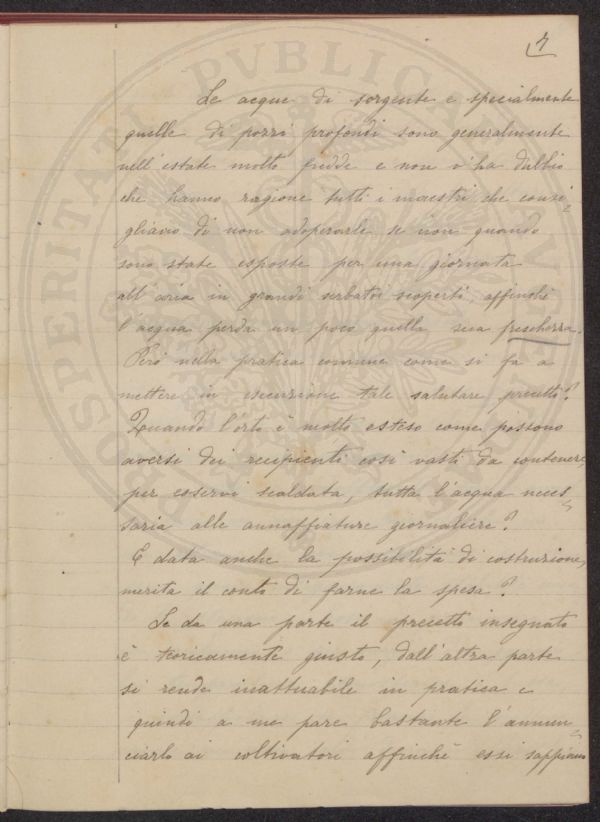 4
Le acque di sorgente e specialmente
quelle di pozzi profondi sono generalmente
nell'estate molto fredde e non v'ha dubbio
che hanno ragione tutti i maestri che consi-
gliano di non adoperarle se non quando
sono state esposte per una giornata
all'aria in grandi serbatoi scoperti, affinchè
l'acqua perda un poco quella sua freschezza.
Però nella pratica comune come si fa a
mettere in esecuzione tale salutare precetto?
Quando l'orto è molto esteso come possono
aversi dei recipienti così vasti da contenere,
per esservi scaldata, tutta l'acqua neces-
saria alle annaffiature giornaliere?
E data anche la possibilità di costruzione,
merita il conto di farne la spesa?
Se da una parte il precetto insegnato
è teoricamente giusto, dall'altra parte
si rende inattuabile in pratica e
quindi a me pare bastante l'annun-
ciarlo ai coltivatori affinchè essi sappiano
PROSPERITATI PVBLICAE